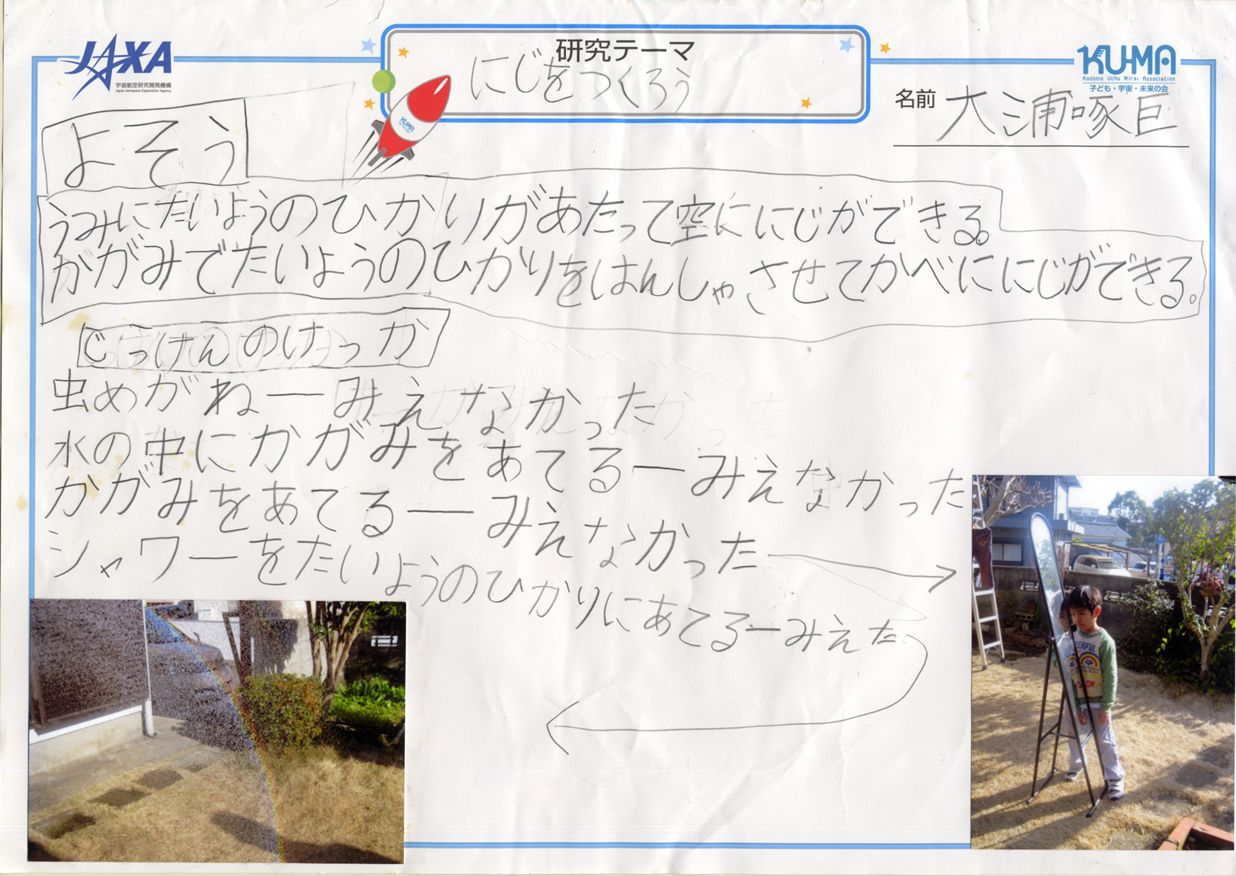 JAXA
宇宙航空研究開発機構
Japan Aerospace Exploration Agency
研究テーマ
にじをつくろう
KUMA
KU-MA
Kodomo Uchu Mirai Association
子ども・宇宙・未来の会
名前 大浦啄巨
よそう
うみにたいようのひかりがあたって空ににじができる。
かがみでたいようのひかりをはんしゃさせてかべににじができる。
じっけんのけっか
虫めがねーみえなかった
水の中にかがみをあてるーみえなかった
かがみをあてるーみえなかった
シャワーをたいようのひかりにあてるーみえた